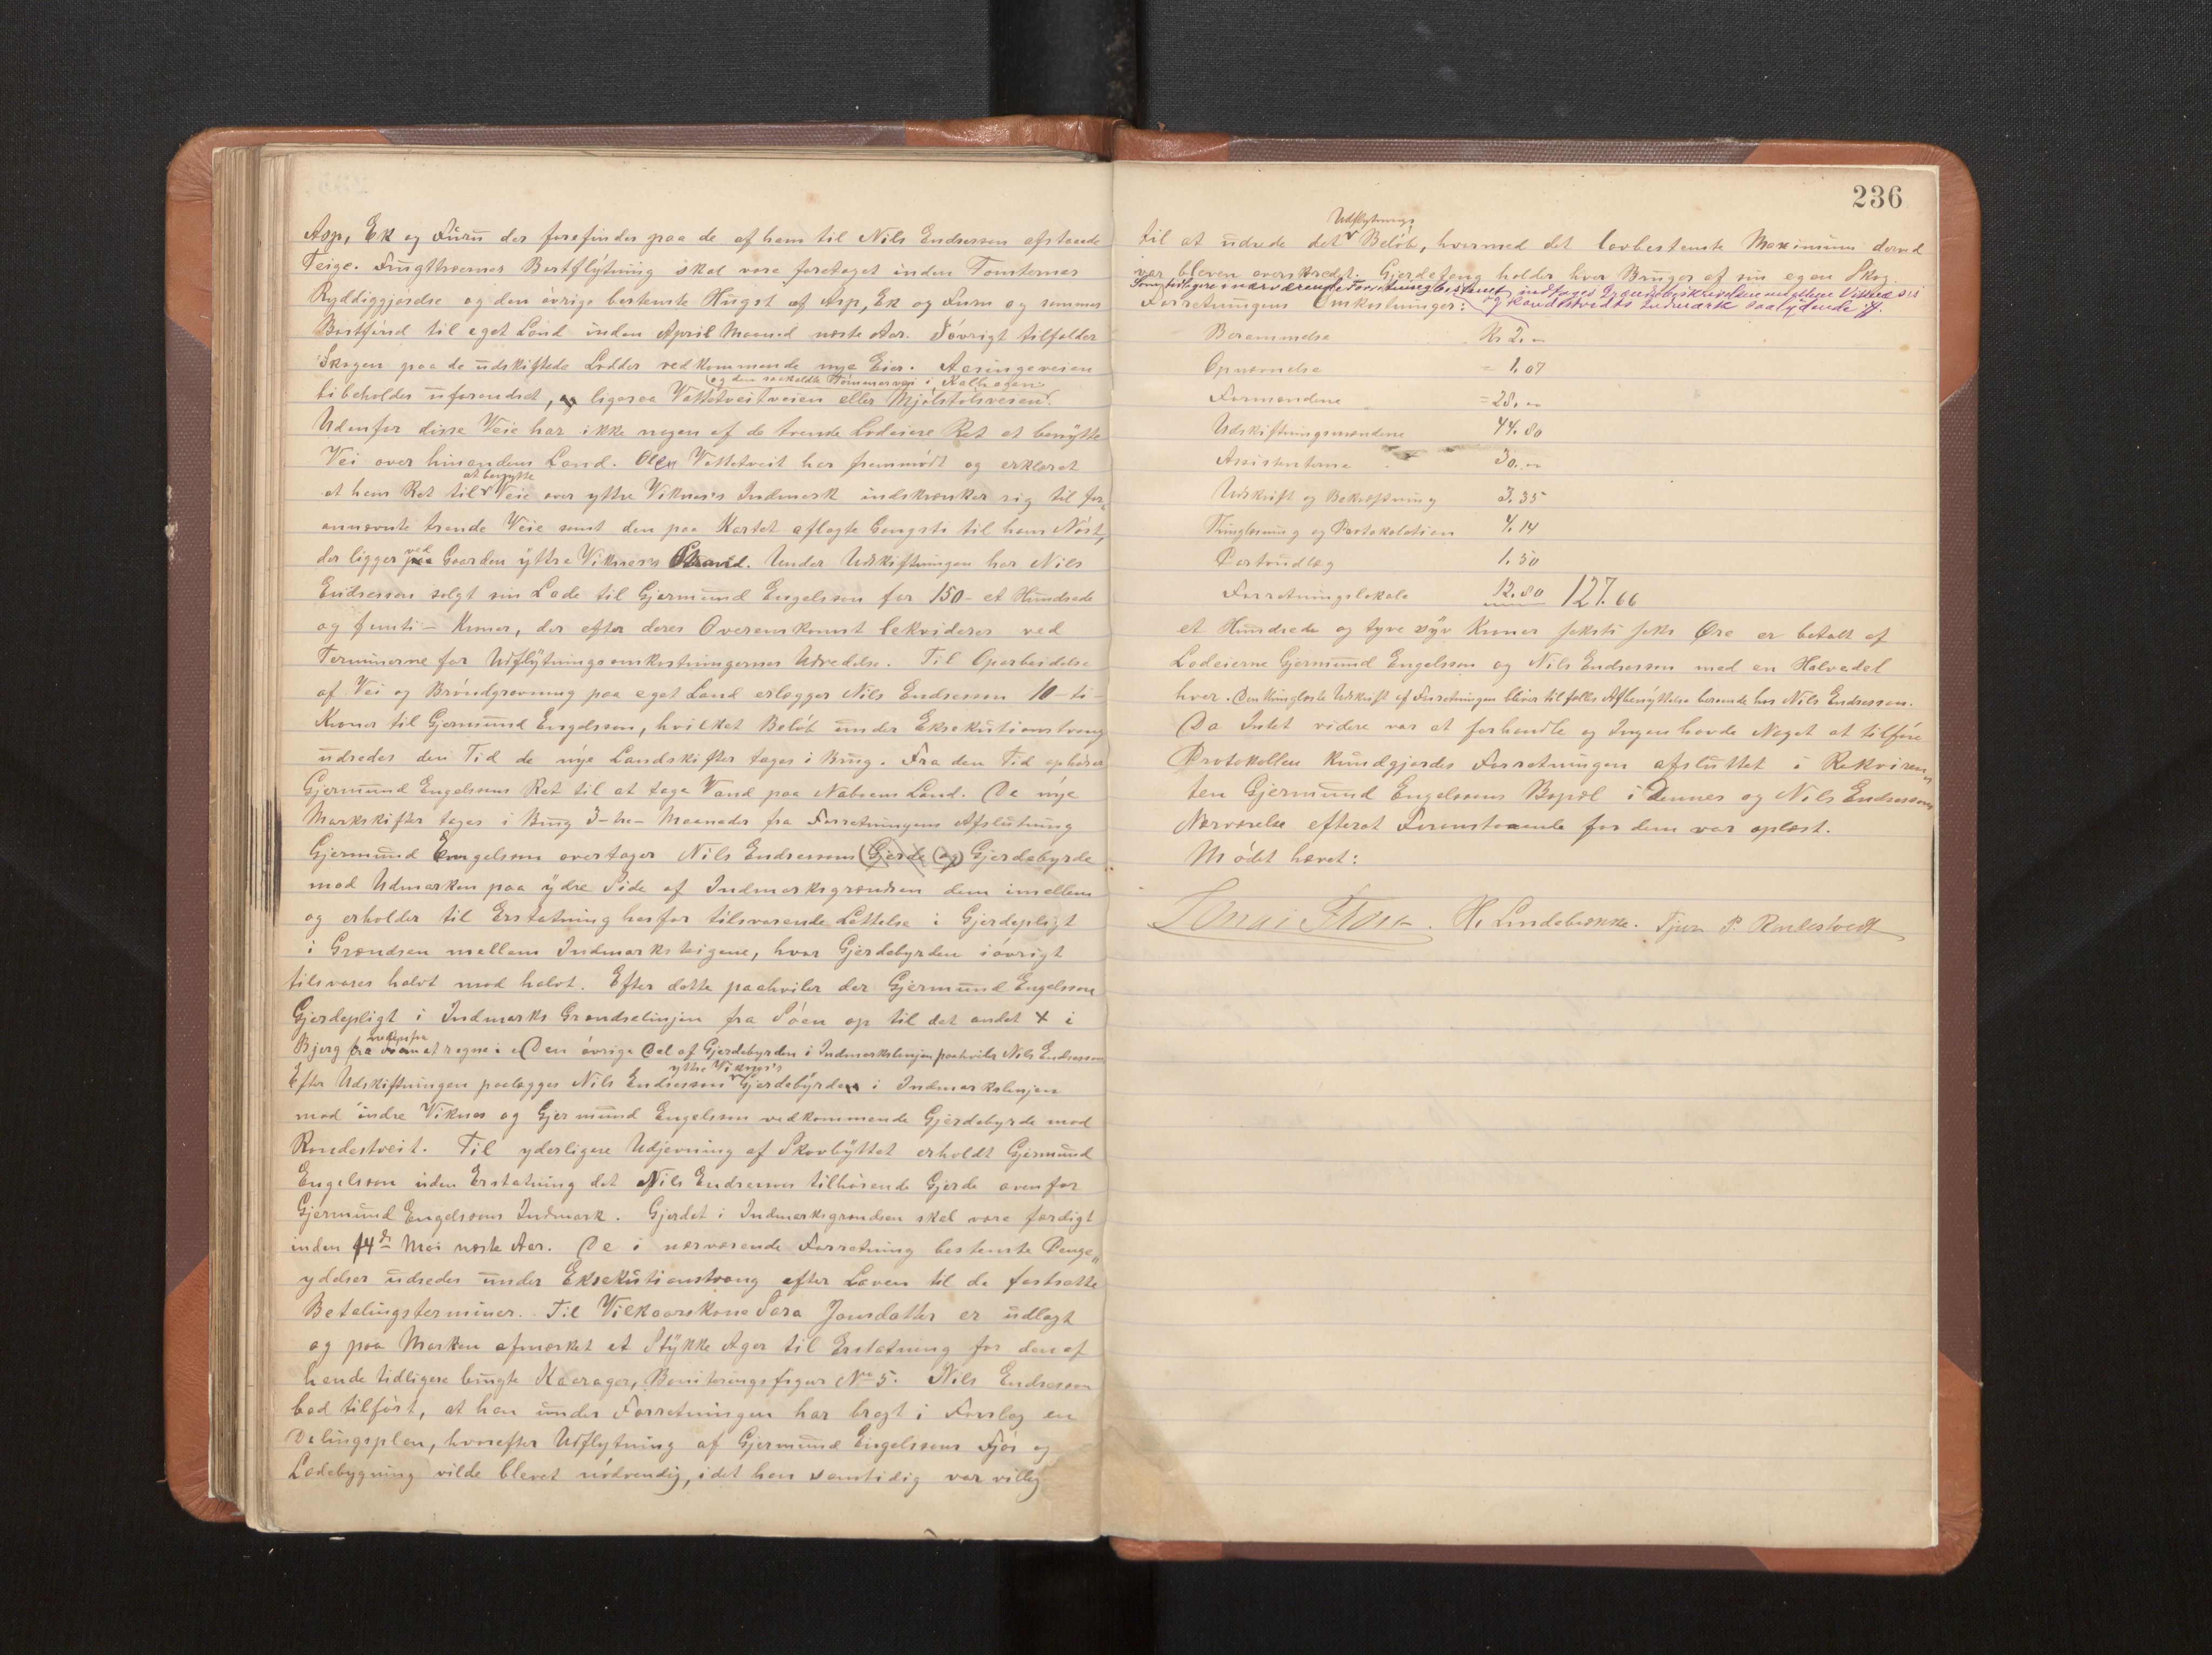 Asp, Ek og Furu der forefindes paa de af ham til Nils Endresson afstaaede
Teige. Frugttrærnes Bortflytning skal være foretaget inden Tomternes
Ryddiggjørelse og den øvrige bestemte Hugst af Asp, Ek og Furu og sammes
Bortførsel til eget Land inden April Maaned næste Aar. Iøvrigt tilfalder
Skogen paa de udskiftede Lodder vedkommende nye Eier. Aasingeveien
og den saakaldte Tømmervei i Kalhagen
bibeholdes uforandret, ligesaa Vattetveitveien eller Mjølstølsveien.
Udenfor disse Veie har ikke nogen af de tvende Lodeiere Ret at benytte
Vei over hinandens Land. Ole Vattetveit har fremmødt og erklæret
at benytte
at hans Ret til Veie over yttre Viknes's Indmark indskrænker sig til for-
annævnte trende Veie samt den paa Kartet aflagte Gangsti til hans Nøst,
der ligger ved Gaarden yttre Viknes's Strand. Under Udskiftningen har Nils
Endresson solgt sin Lade til Gjermund Engelsson for 150 - et Hundrede
og femti - Kroner, der efter deres Overenskomst lekvideres ved
Terminerne for Udflytningsomkostningernes Udredelse. Til Oparbeidelse
af Vei og Brøndgravning paa eget Land erlægger Nils Endresson 10 - ti -
Kroner til Gjermund Engelsson, hvilket Beløb under Eksekutionstvang
udredes den Tid de nye Landskifter tages i Brug. Fra den Tid ophører
Gjermund Engelssons Ret til at tage Vand paa Naboens Land. De nye
Markskifter tages i Brug 3 - tre - Maaneder fra Forretningens Afslutning
Gjermund Engelsson overtager Nils Endressons (Gjerde (og) Gjerdebyrde
mod Udmarken paa ydre Side af Indmarksgrændsen dem imellem
og erholder til Erstatning herfor tilsvarende Lettelse i Gjerdepligt
i Grændsen mellem Indmarksteigene, hvor Gjerdebyrden iøvrigt
tilsvares halvt mod halvt. Efter dette paahviler der Gjermund Engelsson
Gjerdepligt i Indmarks Grændselinjen fra Søen op til det andet X i
nedenfra
Bjerg at regne: Den øvrige Del af Gjerdebyrden i Indmarkslinjen paahviler Nils Endresson
yttre Viknes's
Efter Udskiftningen paalægges Nils Endresson Gjerdebyrden i Indmarkslinjen
mod indre Viknes og Gjermund Engelsson vedkommende Gjerdebyrde mod
Rondestveit. Til yderligere Udjevning af Skovbyttet erholdt Gjermund
Engelsson uden Erstatning det Nils Endresson tilhørende Gjerde ovenfor
Gjermund Engelssons Indmark. Gjerdet i Indmarksgrændsen skal være færdigt
inden 14de Mai næste Aar. De i nærværende Forretning bestemte Penge„
ydelser udredes under Eksekutionstvang efter Loven til de fastsatte
Betalingsterminer. Til Vilkaarskone Sara Jonsdatter er udlagt
og paa Marken afmærket et Stykke Ager til Erstatning for den af
hende tidligere brugte Kaarager, Boniteringsfigur No 5. Nils Endresson
bad tilført, at han under Forretningen har bragt i Forslag en
Delingsplan, hvorefter Udflytning af Gjermund Engelssons Fjøs og
Ladebygning vilde blevet nødvendig, idet han samtidig var villig
236
Udflytnings
til at udrede det Beløb, hvormed det lovbestemte Maximum derved
var bleven overskredet. Gjerdefang holder hver Bruger af sin egen Skog.
Som tidligere i nærværende Forretning bestemt indtages Grændsebeskrivelsen mellem Viknes's
og Rondestveits Indmark saalydende
Forretningens Omkostninger:
Berammelse Kr 2.-
Opnævnelse = 1.07
Formændene = 28.-
Udskiftningsmændene 44.80
Assistenterne 30.-
Udskrift og Bekræftning 3.35
Thinglæsning og Protokolation 4.14
Portoudlæg 1.50
Forretningslokale 12.80 127.66
et Hundrede og tyve syv Kroner seksti seks Øre er betalt af
Lodeierne Gjermund Engelsson og Nils Endresson med en Halvedel
hver. Den thinglæste Udskrift af Forretningen bliver til fælles Afbenyttelse beroende hos Nils Endresson.
Da Intet videre var at forhandle og Ingen havde Noget at tilføre
Protokollen kundgjordes Forretningen afsluttet i Rekviren„
ten Gjermund Engelssons Bopæl i Dennes og Nils Endressons
Nærværelse efterat Foranstaaende for dem var oplæst.
Mødet hævet:
H. Lindebrække. P. Rondestvedt